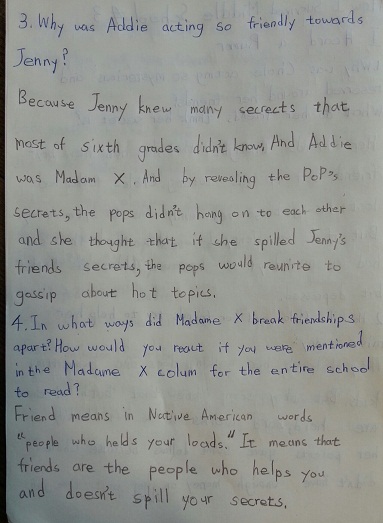 3. Why was Addie acting so friendly towards
Jenny?
Because Jenny knew many secrects that
most of sixth grades didn't know, And Addie
was Madam X. And by revealing the PoP's
secrets, the pops didn't hang on to each other
and she thought that if she spilled Jenny's
friends secrets, the pops would reunite to
gossip about hot topics.
4. In what ways did Madame X break friendships
apart? How would you react if you were mentioned
in the Madame X colum for the entire school
to read?
Friend means in Native American words
"people who helds your loads." It means that
friends are the people who helps you
and doesn't spill your secrets.